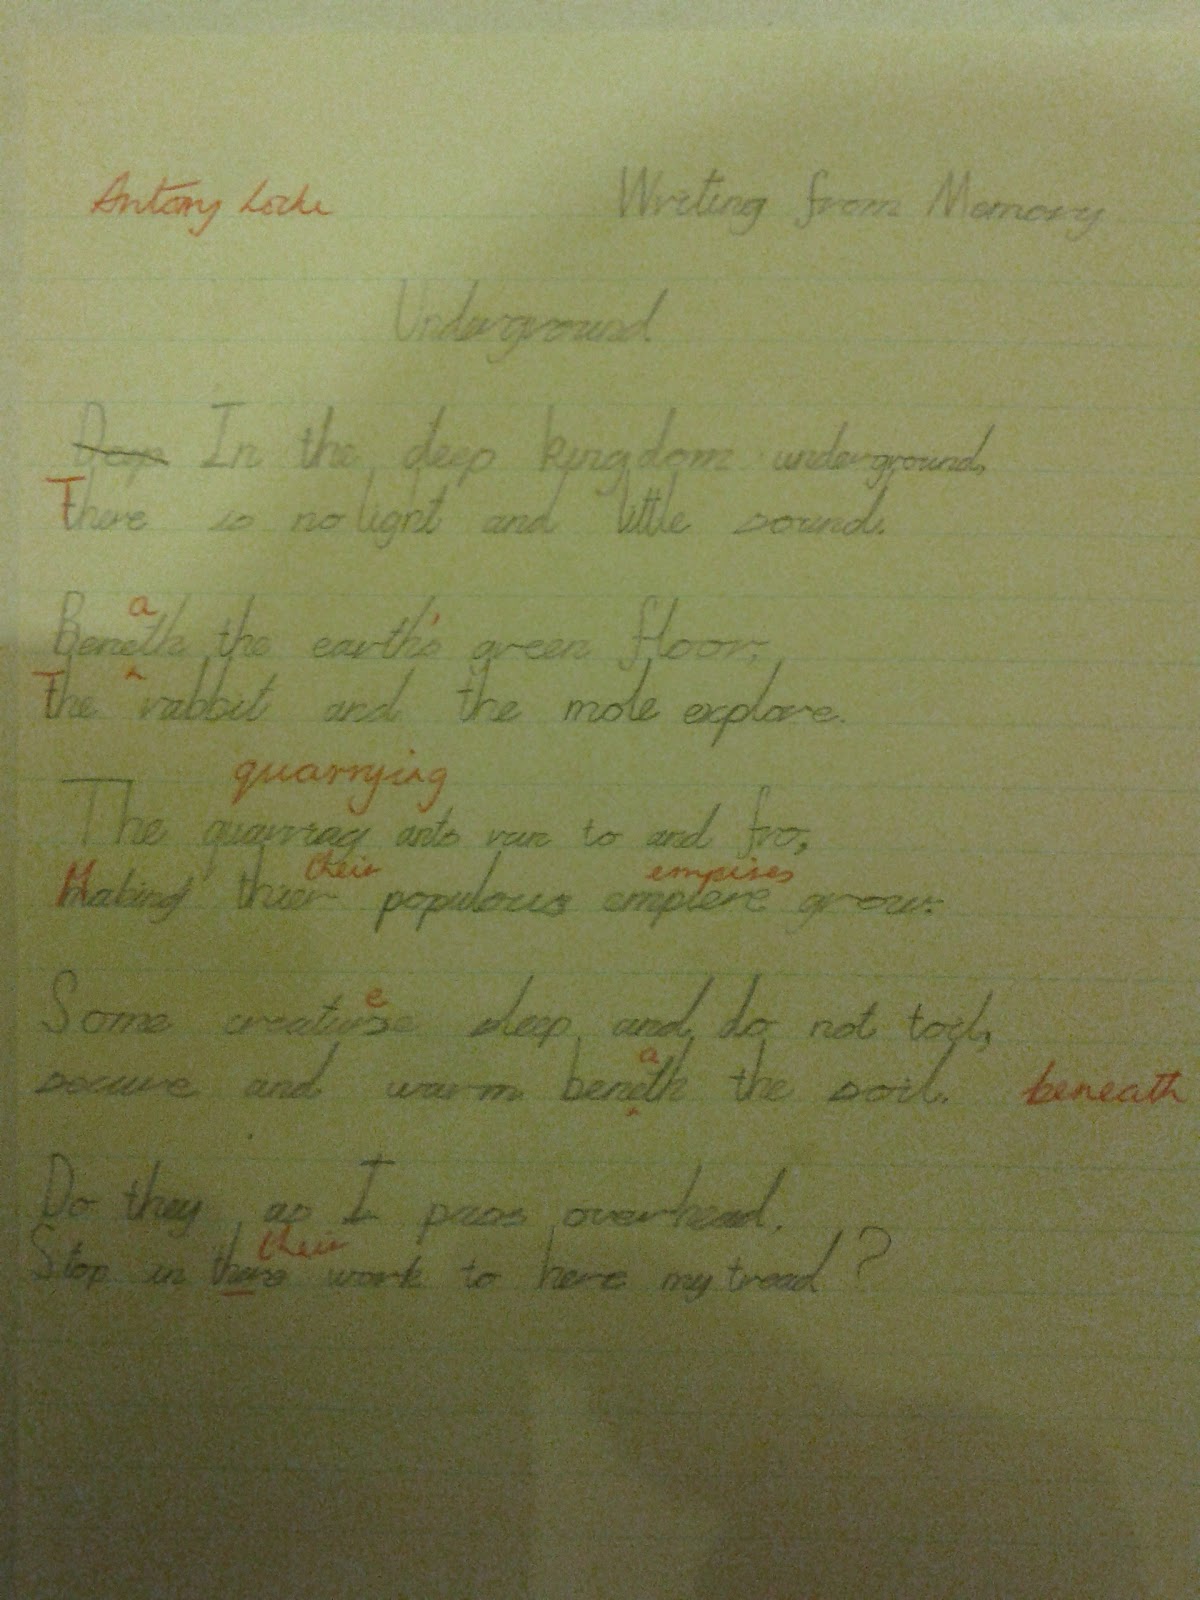 Antony Locke Writing from Memory
Underground
Deep In the deep kingdom underground,
There is no light and little sound.
a
Beneth the earth's green floor,
The rabbit and the mole explore.
quarrying
The quarrag ants run to and fro,
their empires
Making thier populous empiere grow.
e
Some creaturse sleep and do not toil,
a
secure and warm beneth the soil. beneath
Do they as I pass overhead,
their
Stop in there work to here my tread?